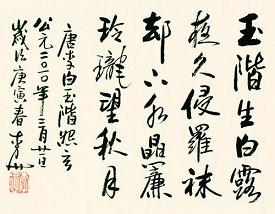 玉階生白露
夜久侵羅袜
却下水晶簾
玲瓏望秋月
唐李白玉階怨言
公元二〇一〇年三月廿日
歲次庚寅春